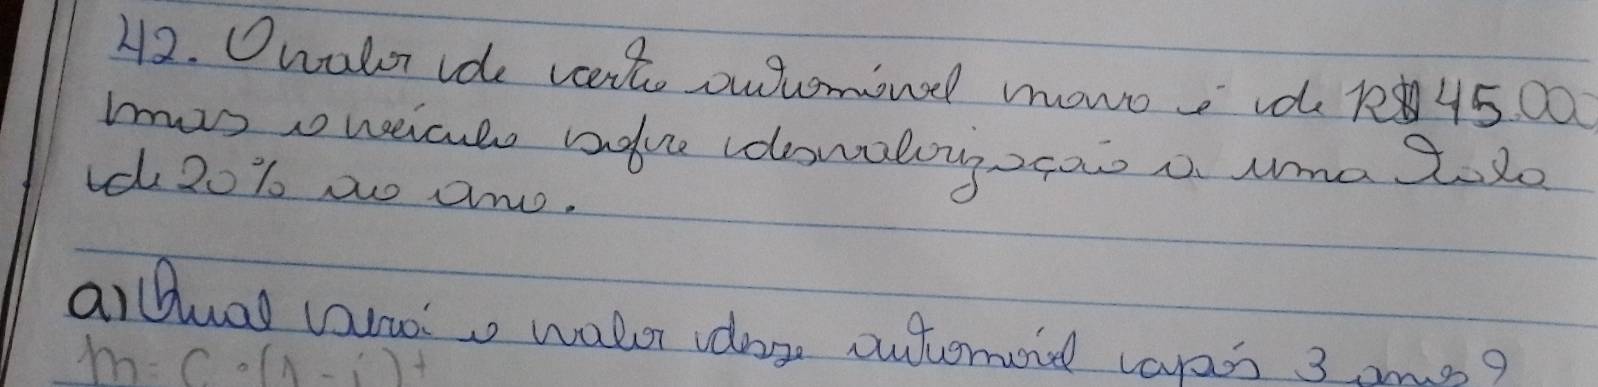 42. O valor de certo automóvel novo é de R$ 45.00
mas o veículo sofre desvalorização a uma taxa
de 20% ao ano.
a) Qual será o valor desse automóvel após 3 anos?
m = C · (1 - i)t